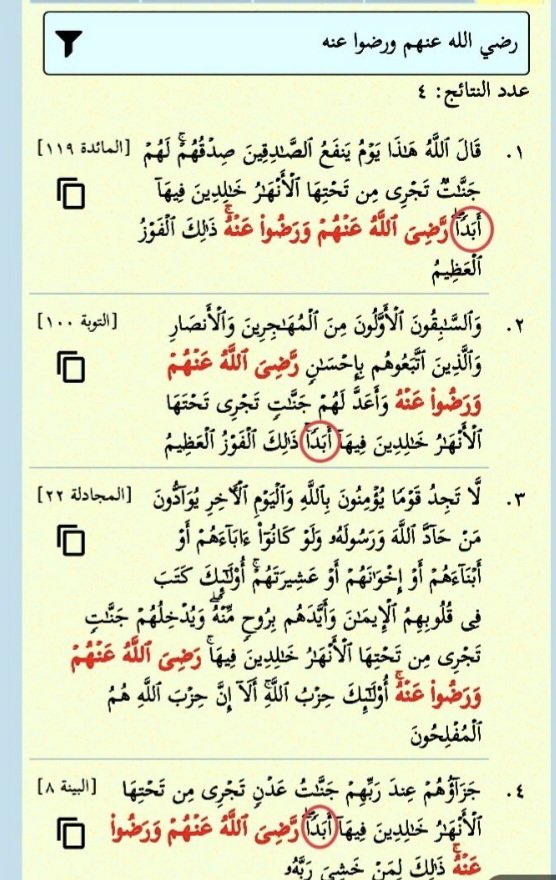 رضي الله عنهم ورضوا عنه
عدد النتائج: ٤
١. قَالَ ٱللَّهُ هَـٰذَا يَوْمُ يَنفَعُ ٱلصَّـٰدِقِينَ صِدْقُهُمْ ۚ لَهُمْ [المائدة ١١٩]
جَنَّـٰتٌ تَجْرِى مِن تَحْتِهَا ٱلْأَنْهَـٰرُ خَـٰلِدِينَ فِيهَآ
أَبَدًا ۚ رَّضِىَ ٱللَّهُ عَنْهُمْ وَرَضُوا۟ عَنْهُ ۚ ذَٰلِكَ ٱلْفَوْزُ
ٱلْعَظِيمُ
٢. وَٱلسَّـٰبِقُونَ ٱلْأَوَّلُونَ مِنَ ٱلْمُهَـٰجِرِينَ وَٱلْأَنصَارِ [التوبة ١٠٠]
وَٱلَّذِينَ ٱتَّبَعُوهُم بِإِحْسَـٰنٍ رَّضِىَ ٱللَّهُ عَنْهُمْ
وَرَضُوا۟ عَنْهُ وَأَعَدَّ لَهُمْ جَنَّـٰتٍ تَجْرِى تَحْتَهَا
ٱلْأَنْهَـٰرُ خَـٰلِدِينَ فِيهَآ أَبَدًا ۚ ذَٰلِكَ ٱلْفَوْزُ ٱلْعَظِيمُ
٣. لَّا تَجِدُ قَوْمًا يُؤْمِنُونَ بِٱللَّهِ وَٱلْيَوْمِ ٱلْـَٔاخِرِ يُوَآدُّونَ [المجادلة ٢٢]
مَنْ حَآدَّ ٱللَّهَ وَرَسُولَهُۥ وَلَوْ كَانُوٓا۟ ءَابَآءَهُمْ أَوْ
أَبْنَآءَهُمْ أَوْ إِخْوَٰنَهُمْ أَوْ عَشِيرَتَهُمْ ۚ أُو۟لَـٰٓئِكَ كَتَبَ
فِى قُلُوبِهِمُ ٱلْإِيمَـٰنَ وَأَيَّدَهُم بِرُوحٍ مِّنْهُ ۖ وَيُدْخِلُهُمْ جَنَّـٰتٍ
تَجْرِى مِن تَحْتِهَا ٱلْأَنْهَـٰرُ خَـٰلِدِينَ فِيهَا ۚ رَضِىَ ٱللَّهُ عَنْهُمْ
وَرَضُوا۟ عَنْهُ ۚ أُو۟لَـٰٓئِكَ حِزْبُ ٱللَّهِ ۚ أَلَآ إِنَّ حِزْبَ ٱللَّهِ هُمُ
ٱلْمُفْلِحُونَ
٤. جَزَآؤُهُمْ عِندَ رَبِّهِمْ جَنَّـٰتُ عَدْنٍ تَجْرِى مِن تَحْتِهَا [البينة ٨]
ٱلْأَنْهَـٰرُ خَـٰلِدِينَ فِيهَآ أَبَدًا ۖ رَّضِىَ ٱللَّهُ عَنْهُمْ وَرَضُوا۟
عَنْهُ ۚ ذَٰلِكَ لِمَنْ خَشِىَ رَبَّهُۥ